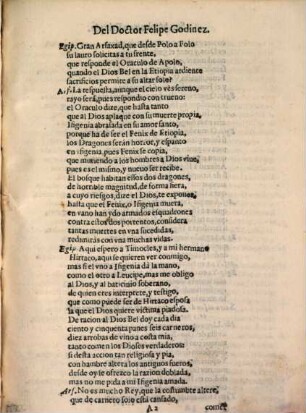 Del Doctor Felipe Godinez.
Egip. Gran Arfaxad, que desde Polo a Polo
su lauro solicitas a tu frente,
que responde el Oraculo de Apolo,
quando el Dios Bel en la Etiopia ardiente
sacrificios permite a so altar solo?
Ars. La respuesta, aunque el cielo vès sereno,
rayo serà, pues respondio con trueno:
el Oraculo dize, que hasta tanto
que al Dios aplaque con su muerte propria,
Ingenia abrasada en su amor santo,
porque ha de ser el Fenix de Etiopia,
los Dragones seràn horror, y espanto
en Insgenia, pues Fenix se copia,
que muriendo a los hombres a Dios vive,
pues es el mismo, y nueuo ser recibe.
El bosque habitan essos dos dragones,
de horrible magnitud, de forma fiera,
a cuyo riesgo, dize el Dios, te expones,
hasta que el Fenix, o Insgenia muera,
en vano han ydo armados esquadrones
contra estos dos portentos, considera
tantas muertes en vna sucedidas,
redimiràs con vna muchas vidas.
Egip. Aqui espero a Timocles, y a mi hermano
Hirraco, aqui se quieren ver conmigo,
mas si el vno a Insgenia dà la mano,
como el otro a Leucipe, mas me obligo
al Dios, y al baticinio soberano,
de quien eres interprete, y testigo,
que como puede ser de Hirraco esposa
la que el Dios quiere victima piadosa.
De racion al Dios Bel doy cada dia
ciento y cinquenta panes seis carneros,
diez arrobas de vino a costa mia,
tanto comen los Dioses verdaderos:
si desta accion tan religiosa y pia,
con hambre altera los antiguos fueros,
desde oy le ofrezco la racion doblada,
mas no me pida a mi Insgenia amada.
Ars. No es mucho Rey, que la costumbre altere,
que de carnero solo està cansado,
A 2 comer